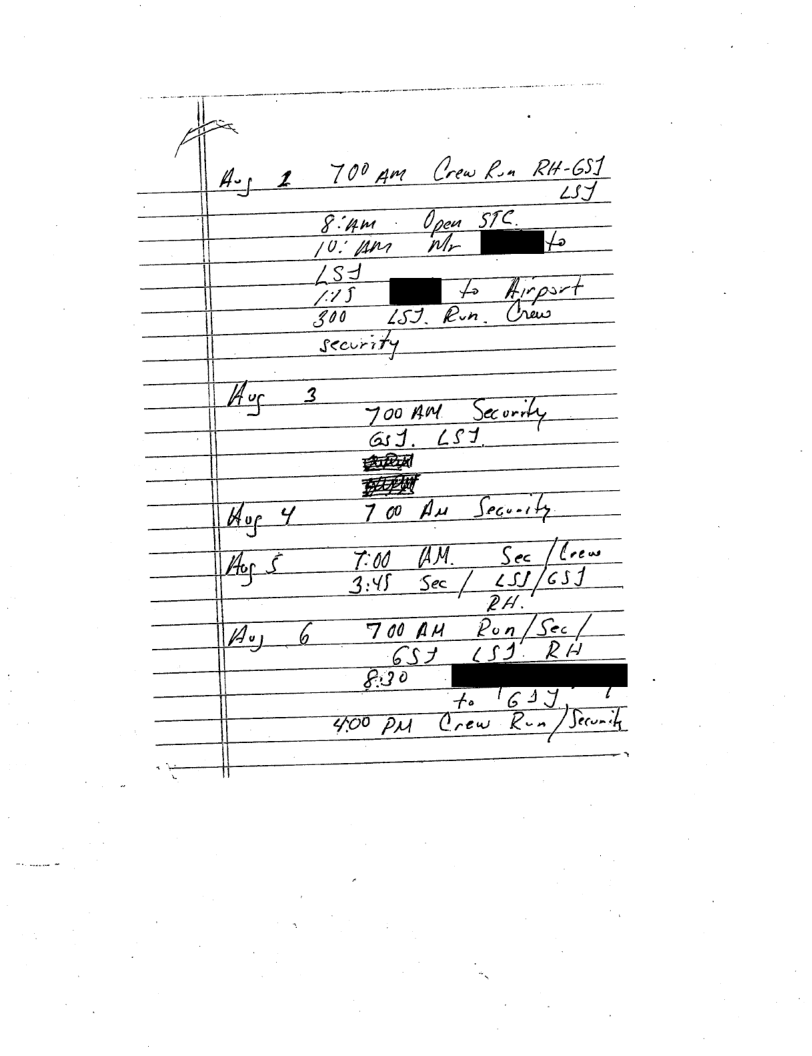 Aug 2 7 00 AM Crew Run RH-GSJ
LSJ
8: AM . Open STC.
10: AM Mr to
LSJ
1:15 to Airport
300 LSJ. Run. Crew
security
Aug 3
7 00 AM Security
GSJ. LSJ.
Aug 4 7 00 AM Security
Aug 5 7:00 AM. Sec / Crew
3:45 Sec / LSJ/GSJ
RH.
Aug 6 7 00 AM Run/Sec/
GSJ LSJ. RH
8:30
to GSJ,
4:00 PM Crew Run/Security